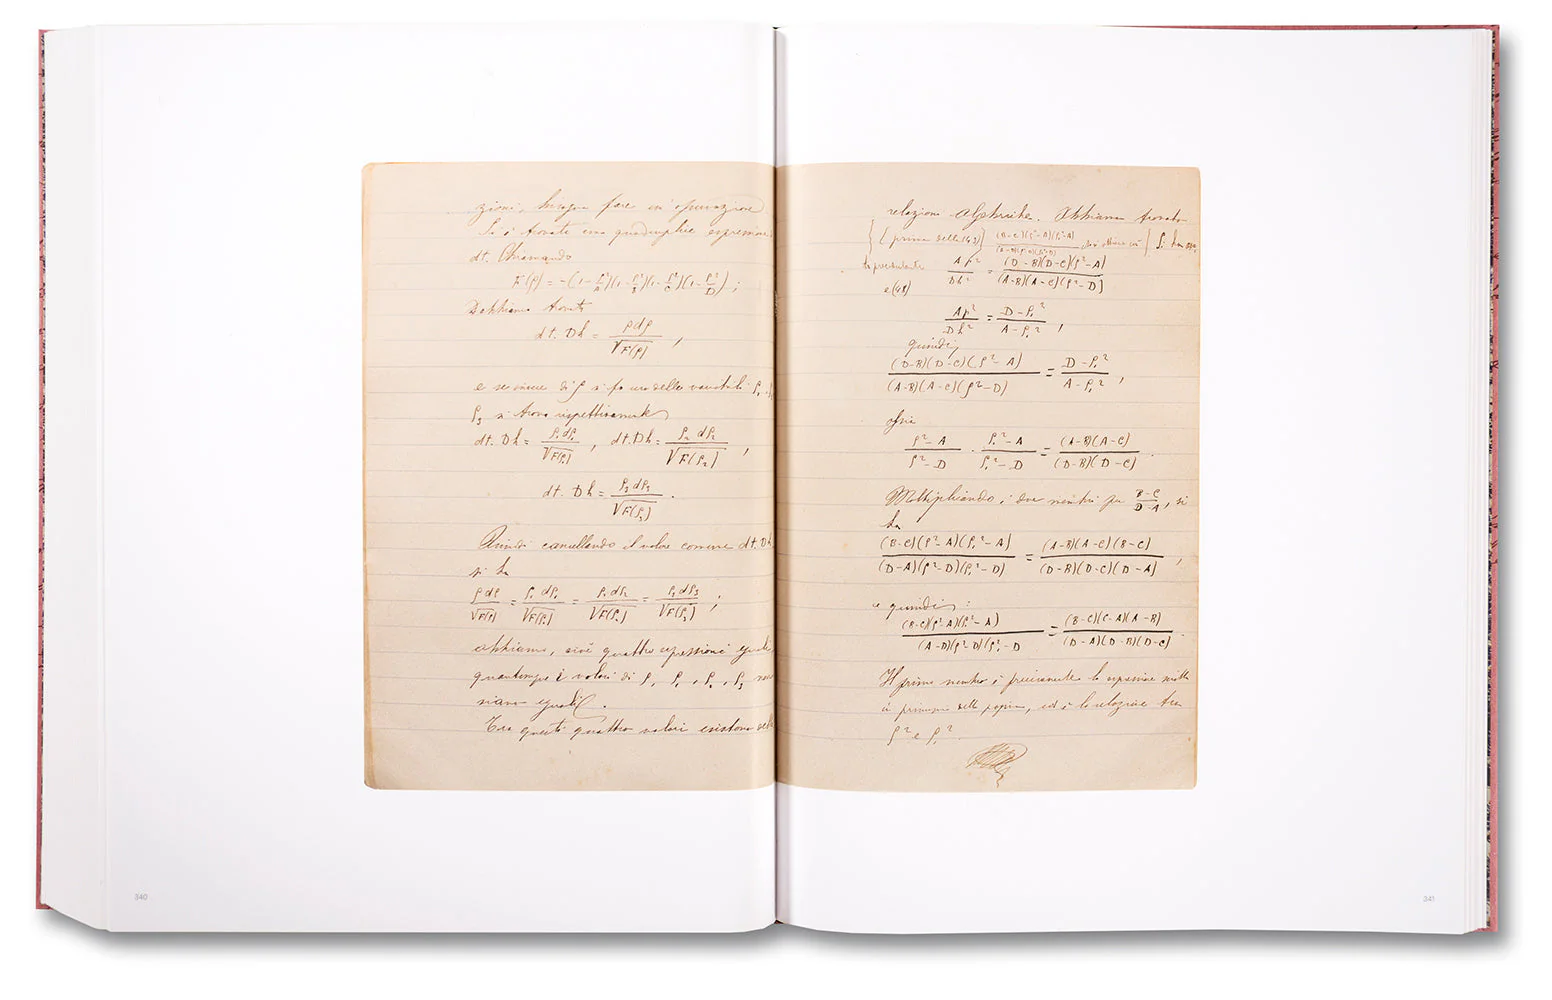 zioni, bisogna fare un'operazione
Si è trovata una quadruplice espressione
dt. Chiamando
F(ρ) = -(1-ρ²/A)(1-ρ²/B)(1-ρ²/C)(1-ρ²/D);
abbiamo trovato
dt. Dh = ρdρ/√F(ρ),
e se invece di ρ si fa uso delle variabili ρ₁,
ρ₃ si trova rispettivamente
dt. Dh = ρ₁dρ₁/√F(ρ₁), dt. Dh = ρ₂dρ₂/√F(ρ₂),
dt. Dh = ρ₃dρ₃/√F(ρ₃).
Quindi cancellando il valore comune dt. Dh
si ha
ρdρ/√F(ρ) = ρ₁dρ₁/√F(ρ₁) = ρ₂dρ₂/√F(ρ₂) = ρ₃dρ₃/√F(ρ₃);
abbiamo, cioè quattro espressioni eguali
quantunque i valori di ρ, ρ₁, ρ₂, ρ₃ non
siano eguali.
Tra questi quattro valori esistono delle
340
relazioni algebriche. Abbiamo trovato
(prima della (43)) (B-C)(ρ²-A)(ρ₁²-A)
la precedente Ap²/Dh² = (D-B)(D-C)(ρ²-A)/(A-B)(A-C)(ρ²-D)
e (48)
Ap²/Dh² = D-ρ₁²/A-ρ₁²,
quindi
(D-B)(D-C)(ρ²-A)/(A-B)(A-C)(ρ²-D) = D-ρ₁²/A-ρ₁²,
ossia
ρ²-A/ρ²-D · ρ₁²-A/ρ₁²-D = (A-B)(A-C)/(D-B)(D-C).
Moltiplicando i due membri per B-C/D-A, si
ha
(B-C)(ρ²-A)(ρ₁²-A)/(D-A)(ρ²-D)(ρ₁²-D) = (A-B)(A-C)(B-C)/(D-B)(D-C)(D-A),
e quindi:
(B-C)(ρ²-A)(ρ₁²-A)/(A-D)(ρ²-D)(ρ₁²-D = (B-C)(C-A)(A-B)/(D-A)(D-B)(D-C).
Il primo membro è precisamente la espressione scritta
in principio della pagina, ed è la relazione tra
ρ² e ρ₁².
341